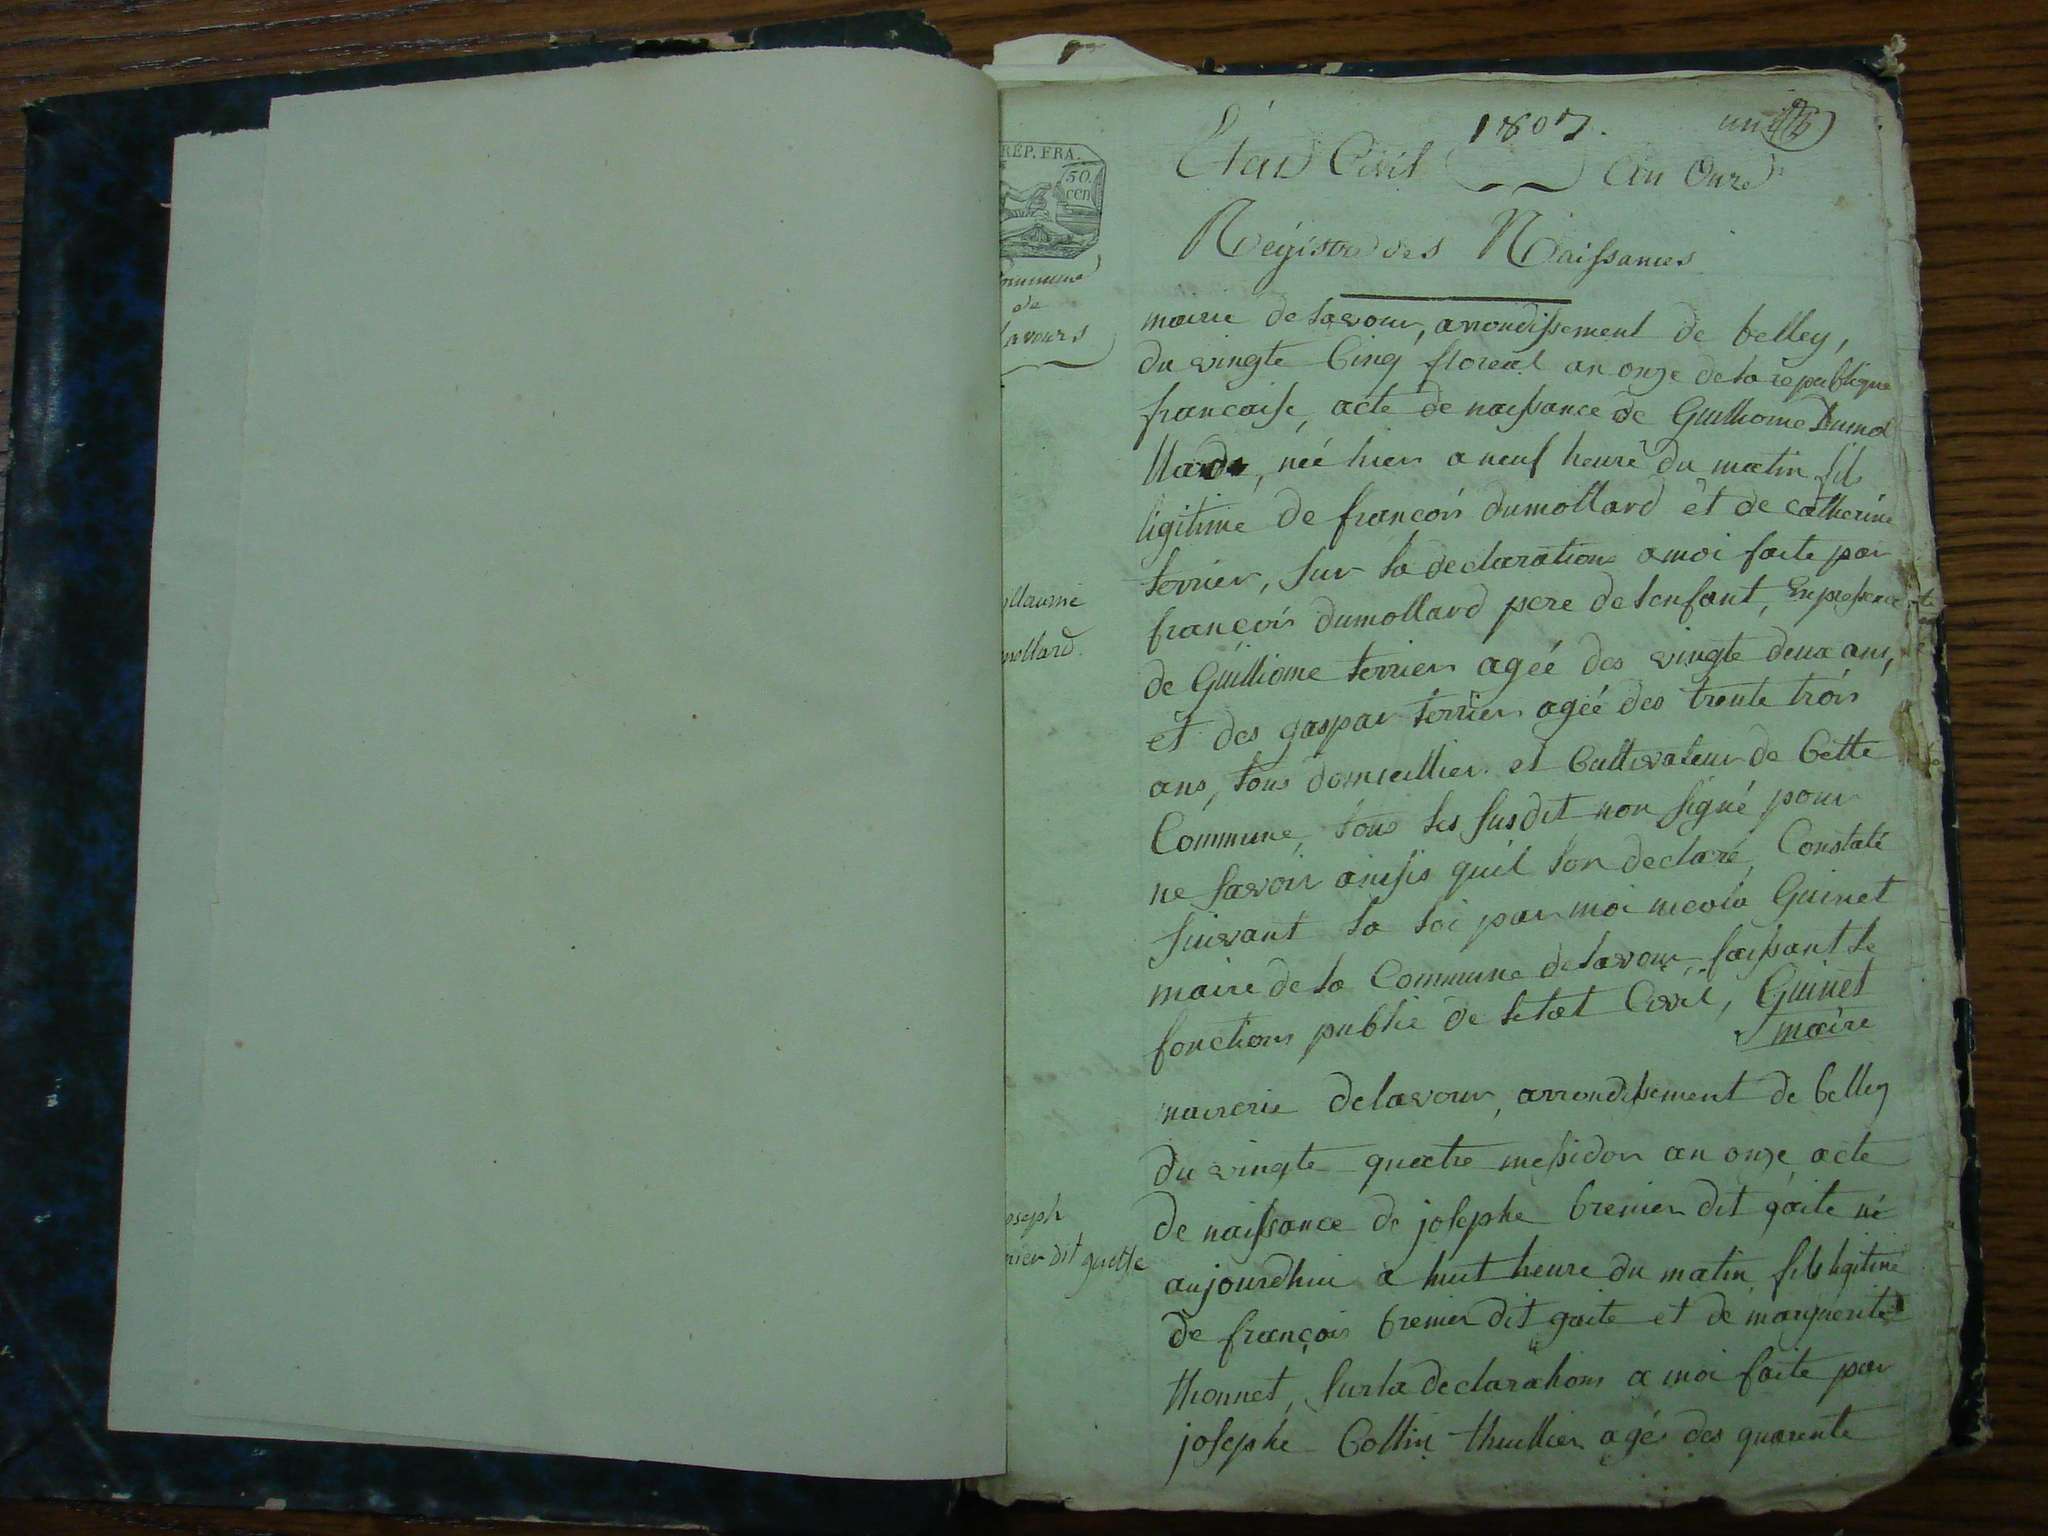 1807.
État Civil An Onze
Régistre des Naissances
RÉP. FRA.
50
cen
Commune
de
Lavours
mairie de lavour, arrondissement de belley,
du vingte Cinq floreal an onze de la republique
francaise, acte de naissance de Guilliome Dumol
llard, néé hier a neuf heure du matin fils
ligitime de francois dumollard et de catherine
terrier, sur la declarations a moi faite par
francois dumollard pere de lenfant, En presence
de Guilliome terrier agéé des vingte deux ans,
et des gaspar terrier agéé des trente trois
ans, tous domicillier et Cultivateur de Cette
Commune, tous les susdit non signé pour
ne savoir ainsis quil lon declaré, Constaté
suivant la loi par moi nicola Guinet
maire de la Commune de lavour, faissant le
fonctions publie de letat Civil, Guinet
maire
illaume
mollard.
mairerie delavour, arrondissement de belley
du vingte quatre messidor an onze acte
de naissance de josephe brenier dit gaite né
aujourdhui a huit heure du matin fils ligitime
de françois brenier dit gaite et de marguerite
thonnet, sur la declarations a moi faite par
josephe Collin thuillier agé des quarente
oseph
nier dit guette